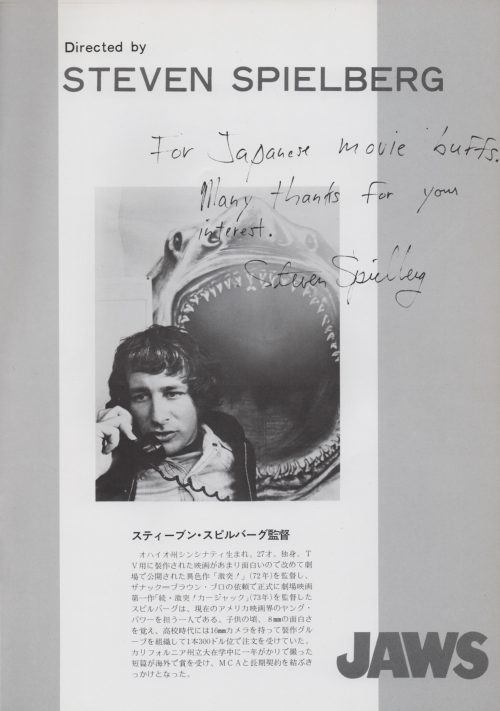 Directed by
STEVEN SPIELBERG
For Japanese movie buffs.
Many thanks for your
interest.
Steven Spielberg
スティーブン・スピルバーグ監督
オハイオ州シンシナティ生まれ。27才。独身。T
V用に製作された映画があまり面白いので改めて劇
場で公開された異色作「激突！」(72年)を監督し、
ザナック=ブラウン・プロの依頼で正式に劇場映画
第一作「続・激突！カージャック」(73年)を監督した
スピルバーグは、現在のアメリカ映画界のヤング・
パワーを担う一人である。子供の頃、8㎜の面白さ
を覚え、高校時代には16㎜カメラを持って製作グルー
プを組織して1本300ドル位で注文を受けていた。
カリフォルニア州立大在学中に一年がかりで撮った
短篇が海外で賞を受け、MCAと長期契約を結ぶき
っかけとなった。
JAWS